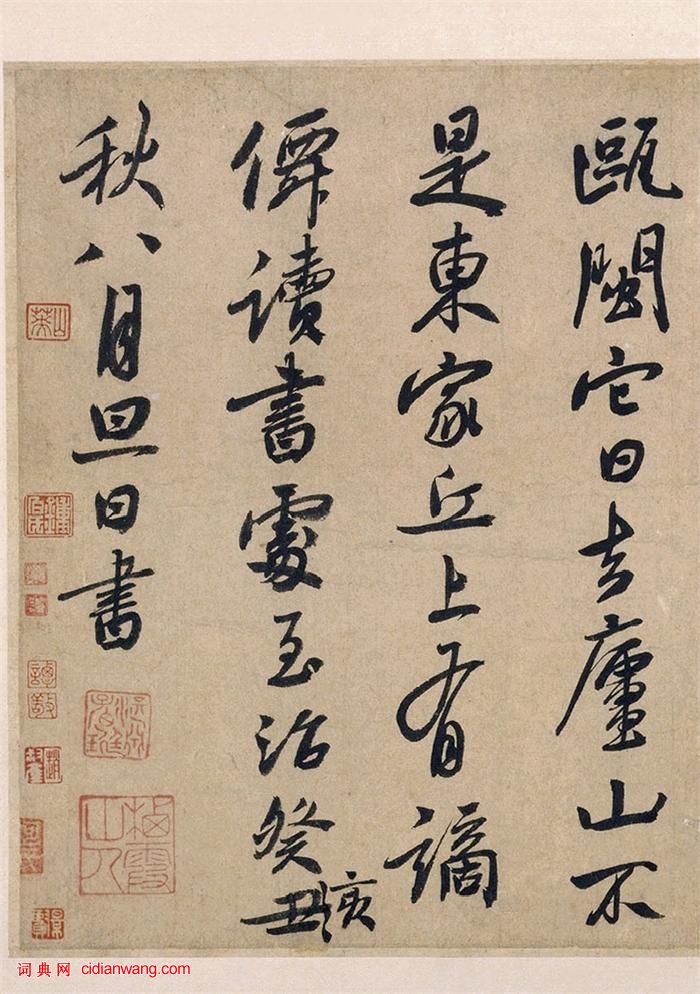 甌閩它日去廬山不
是東家丘上有謫
僊讀書處至治癸丑亥
秋八月旦日書
譚敬
词典网 cidianwang.com